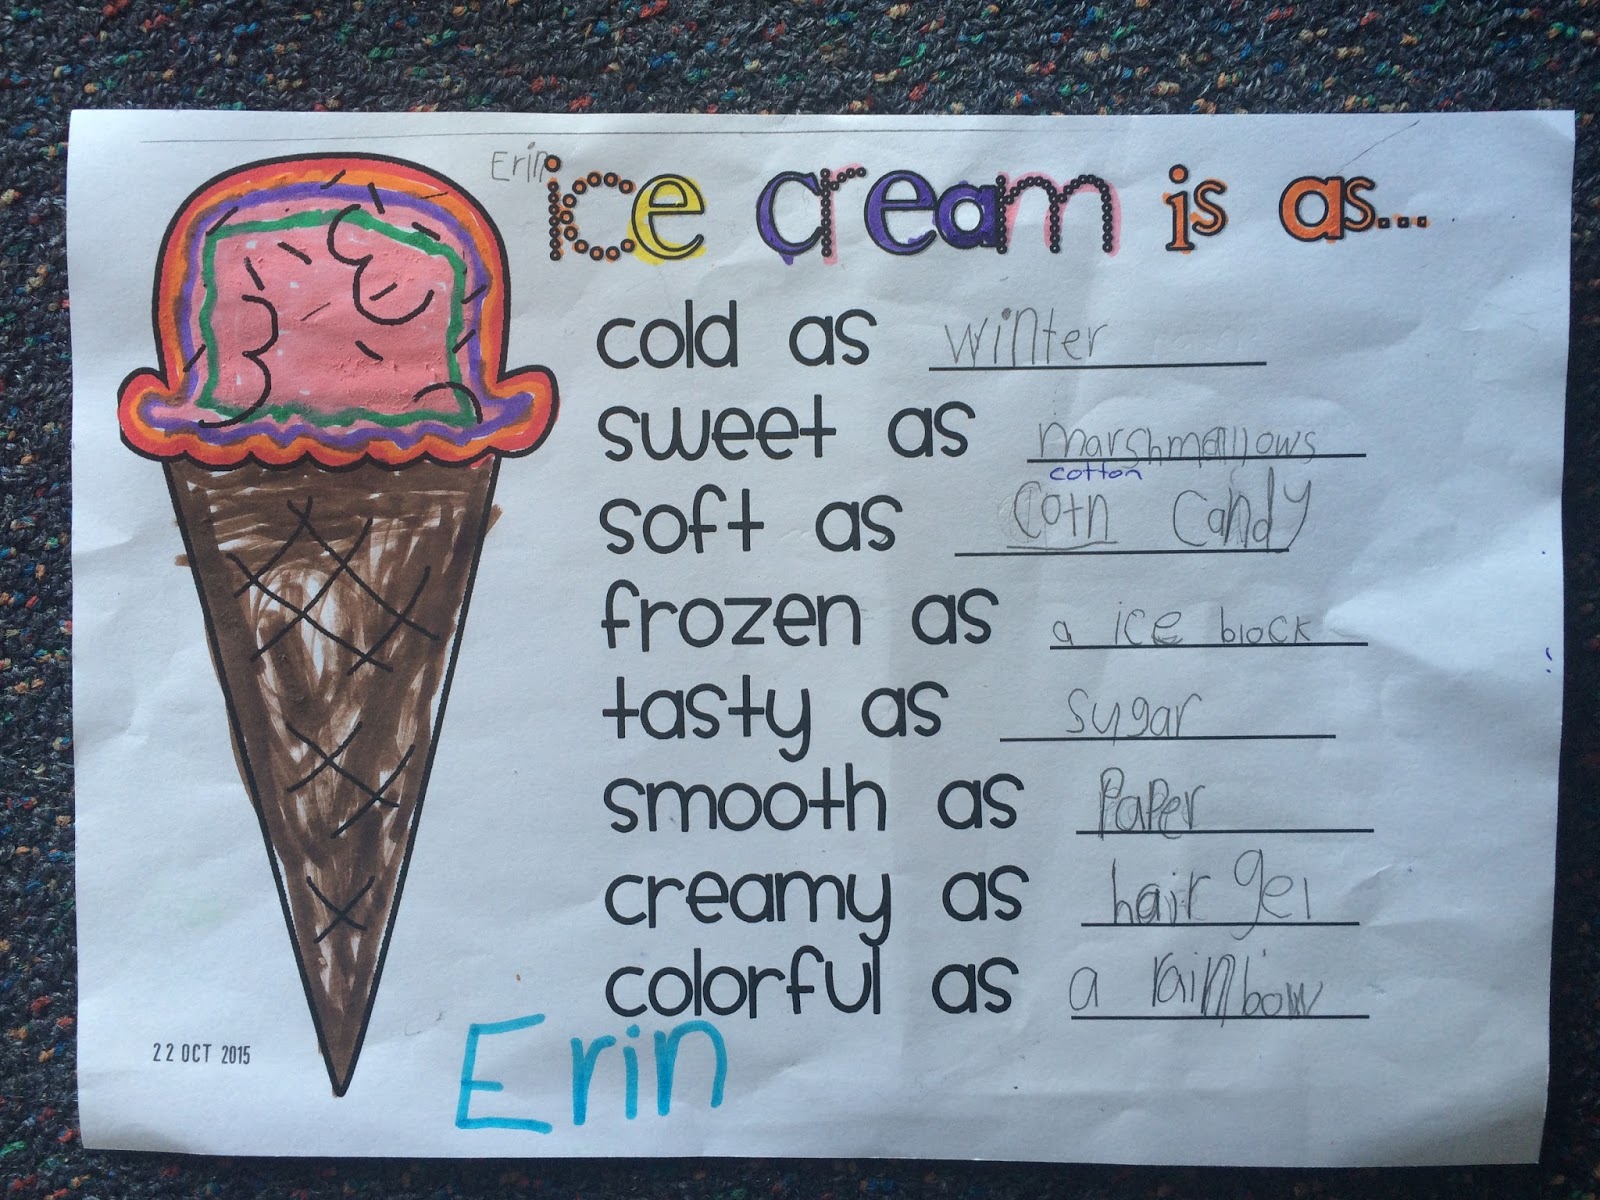 Erin
ice cream is as...
cold as winter
sweet as marshmallows
cotton
soft as cotn candy
frozen as a ice block
tasty as sugar
smooth as Paper
creamy as hair gel
colorful as a rainbow
22 OCT 2015
Erin